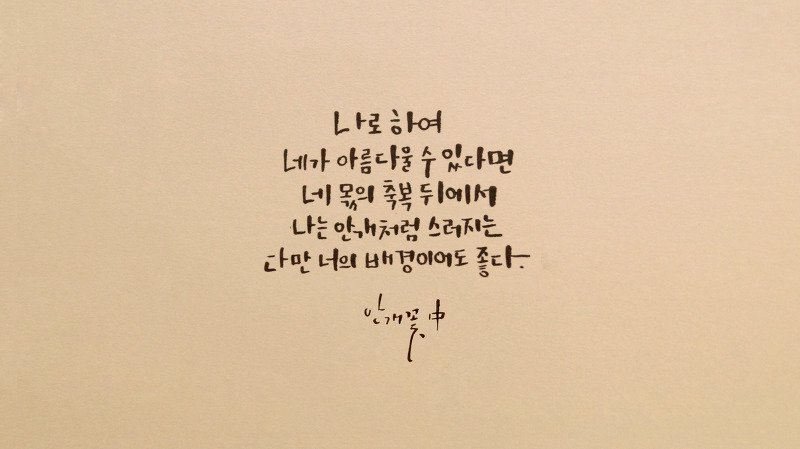 나로 하여
네가 아름다울 수 있다면
네 몫의 축복 뒤에서
나는 안개처럼 스러지는
다만 너의 배경이어도 좋다.
안개꽃 中